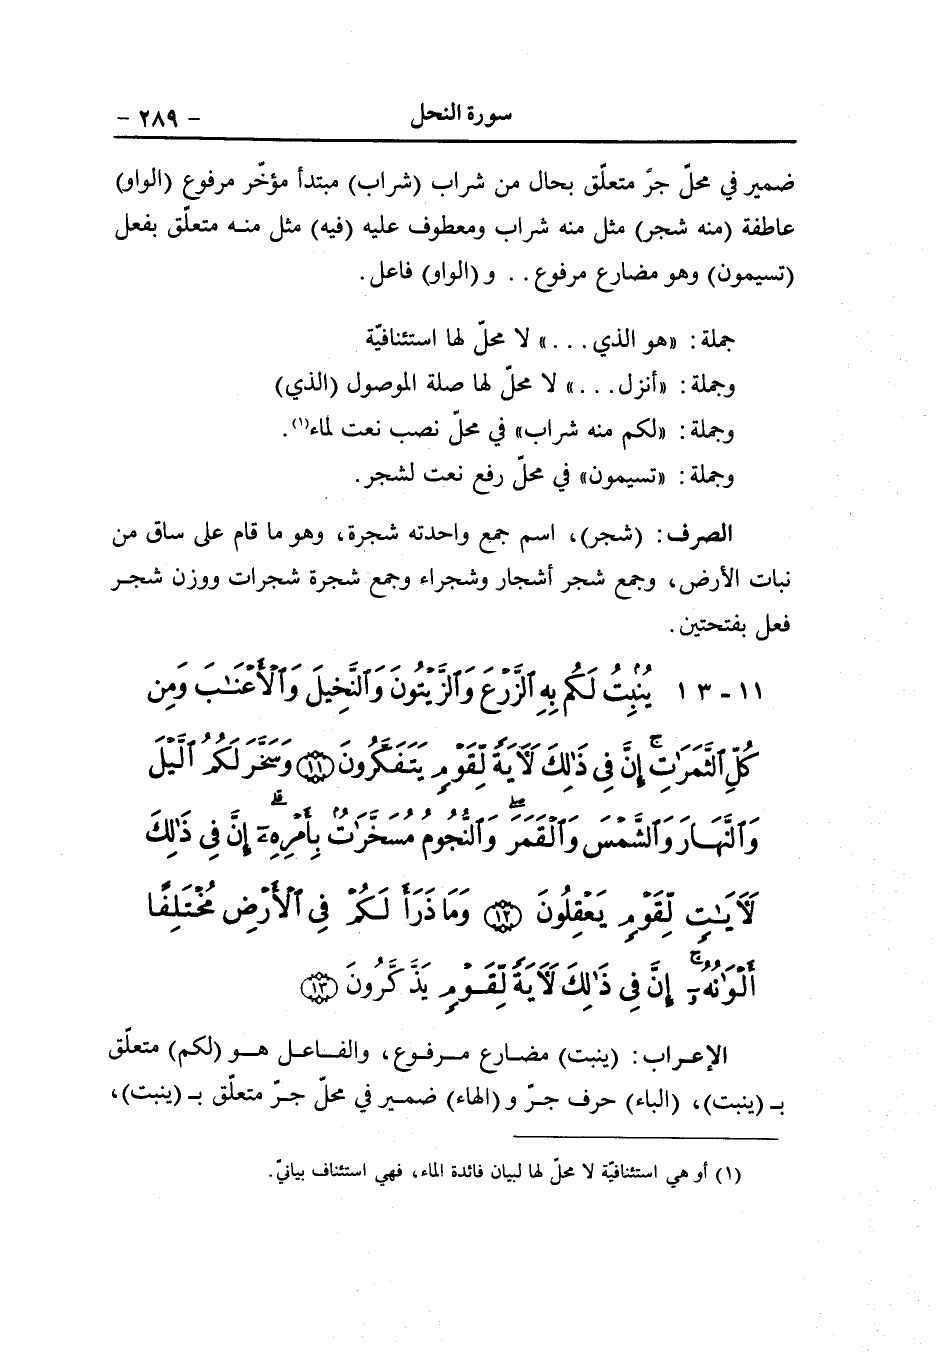 سورة النحل - ٢٨٩ -
ضمير في محلّ جرّ متعلّق بحال من شراب (شراب) مبتدأ مؤخّر مرفوع (الواو)
عاطفة (منه شجر) مثل منه شراب ومعطوف عليه (فيه) مثل منه متعلّق بفعل
(تسيمون) وهو مضارع مرفوع . . و (الواو) فاعل .
جملة : «هو الذي . . .» لا محلّ لها استئنافيّة
وجملة : «أنزل . . .» لا محلّ لها صلة الموصول (الذي)
وجملة : «لكم منه شراب» في محلّ نصب نعت لماء(١).
وجملة : «تسيمون» في محلّ رفع نعت لشجر .
الصرف : (شجر)، اسم جمع واحدته شجرة، وهو ما قام على ساق من
نبات الأرض، وجمع شجر أشجار وشجراء وجمع شجرة شجرات ووزن شجر
فعل بفتحتين .
١١ - ١٣ يُنۢبِتُ لَكُم بِهِ ٱلزَّرۡعَ وَٱلزَّيۡتُونَ وَٱلنَّخِيلَ وَٱلۡأَعۡنَٰبَ وَمِن
كُلِّ ٱلثَّمَرَٰتِۚ إِنَّ فِى ذَٰلِكَ لَأٓيَةً لِّقَوۡمٍ يَتَفَكَّرُونَ ﴿١١﴾ وَسَخَّرَ لَكُمُ ٱلَّيۡلَ
وَٱلنَّهَارَ وَٱلشَّمۡسَ وَٱلۡقَمَرَۖ وَٱلنُّجُومُ مُسَخَّرَٰتُۢ بِأَمۡرِهِۦٓۗ إِنَّ فِى ذَٰلِكَ
لَأٓيَٰتٍ لِّقَوۡمٍ يَعۡقِلُونَ ﴿١٢﴾ وَمَا ذَرَأَ لَكُمۡ فِى ٱلۡأَرۡضِ مُخۡتَلِفًا
أَلۡوَٰنُهُۥٓۚ إِنَّ فِى ذَٰلِكَ لَأٓيَةً لِّقَوۡمٍ يَذَّكَّرُونَ ﴿١٣﴾
الإعراب : (ينبت) مضارع مرفوع، والفاعل هو (لكم) متعلّق
بـ (ينبت)، (الباء) حرف جرّ و (الهاء) ضمير في محلّ جرّ متعلّق بـ (ينبت)،
(١) أو هي استئنافيّة لا محلّ لها لبيان فائدة الماء، فهي استئناف بيانيّ .